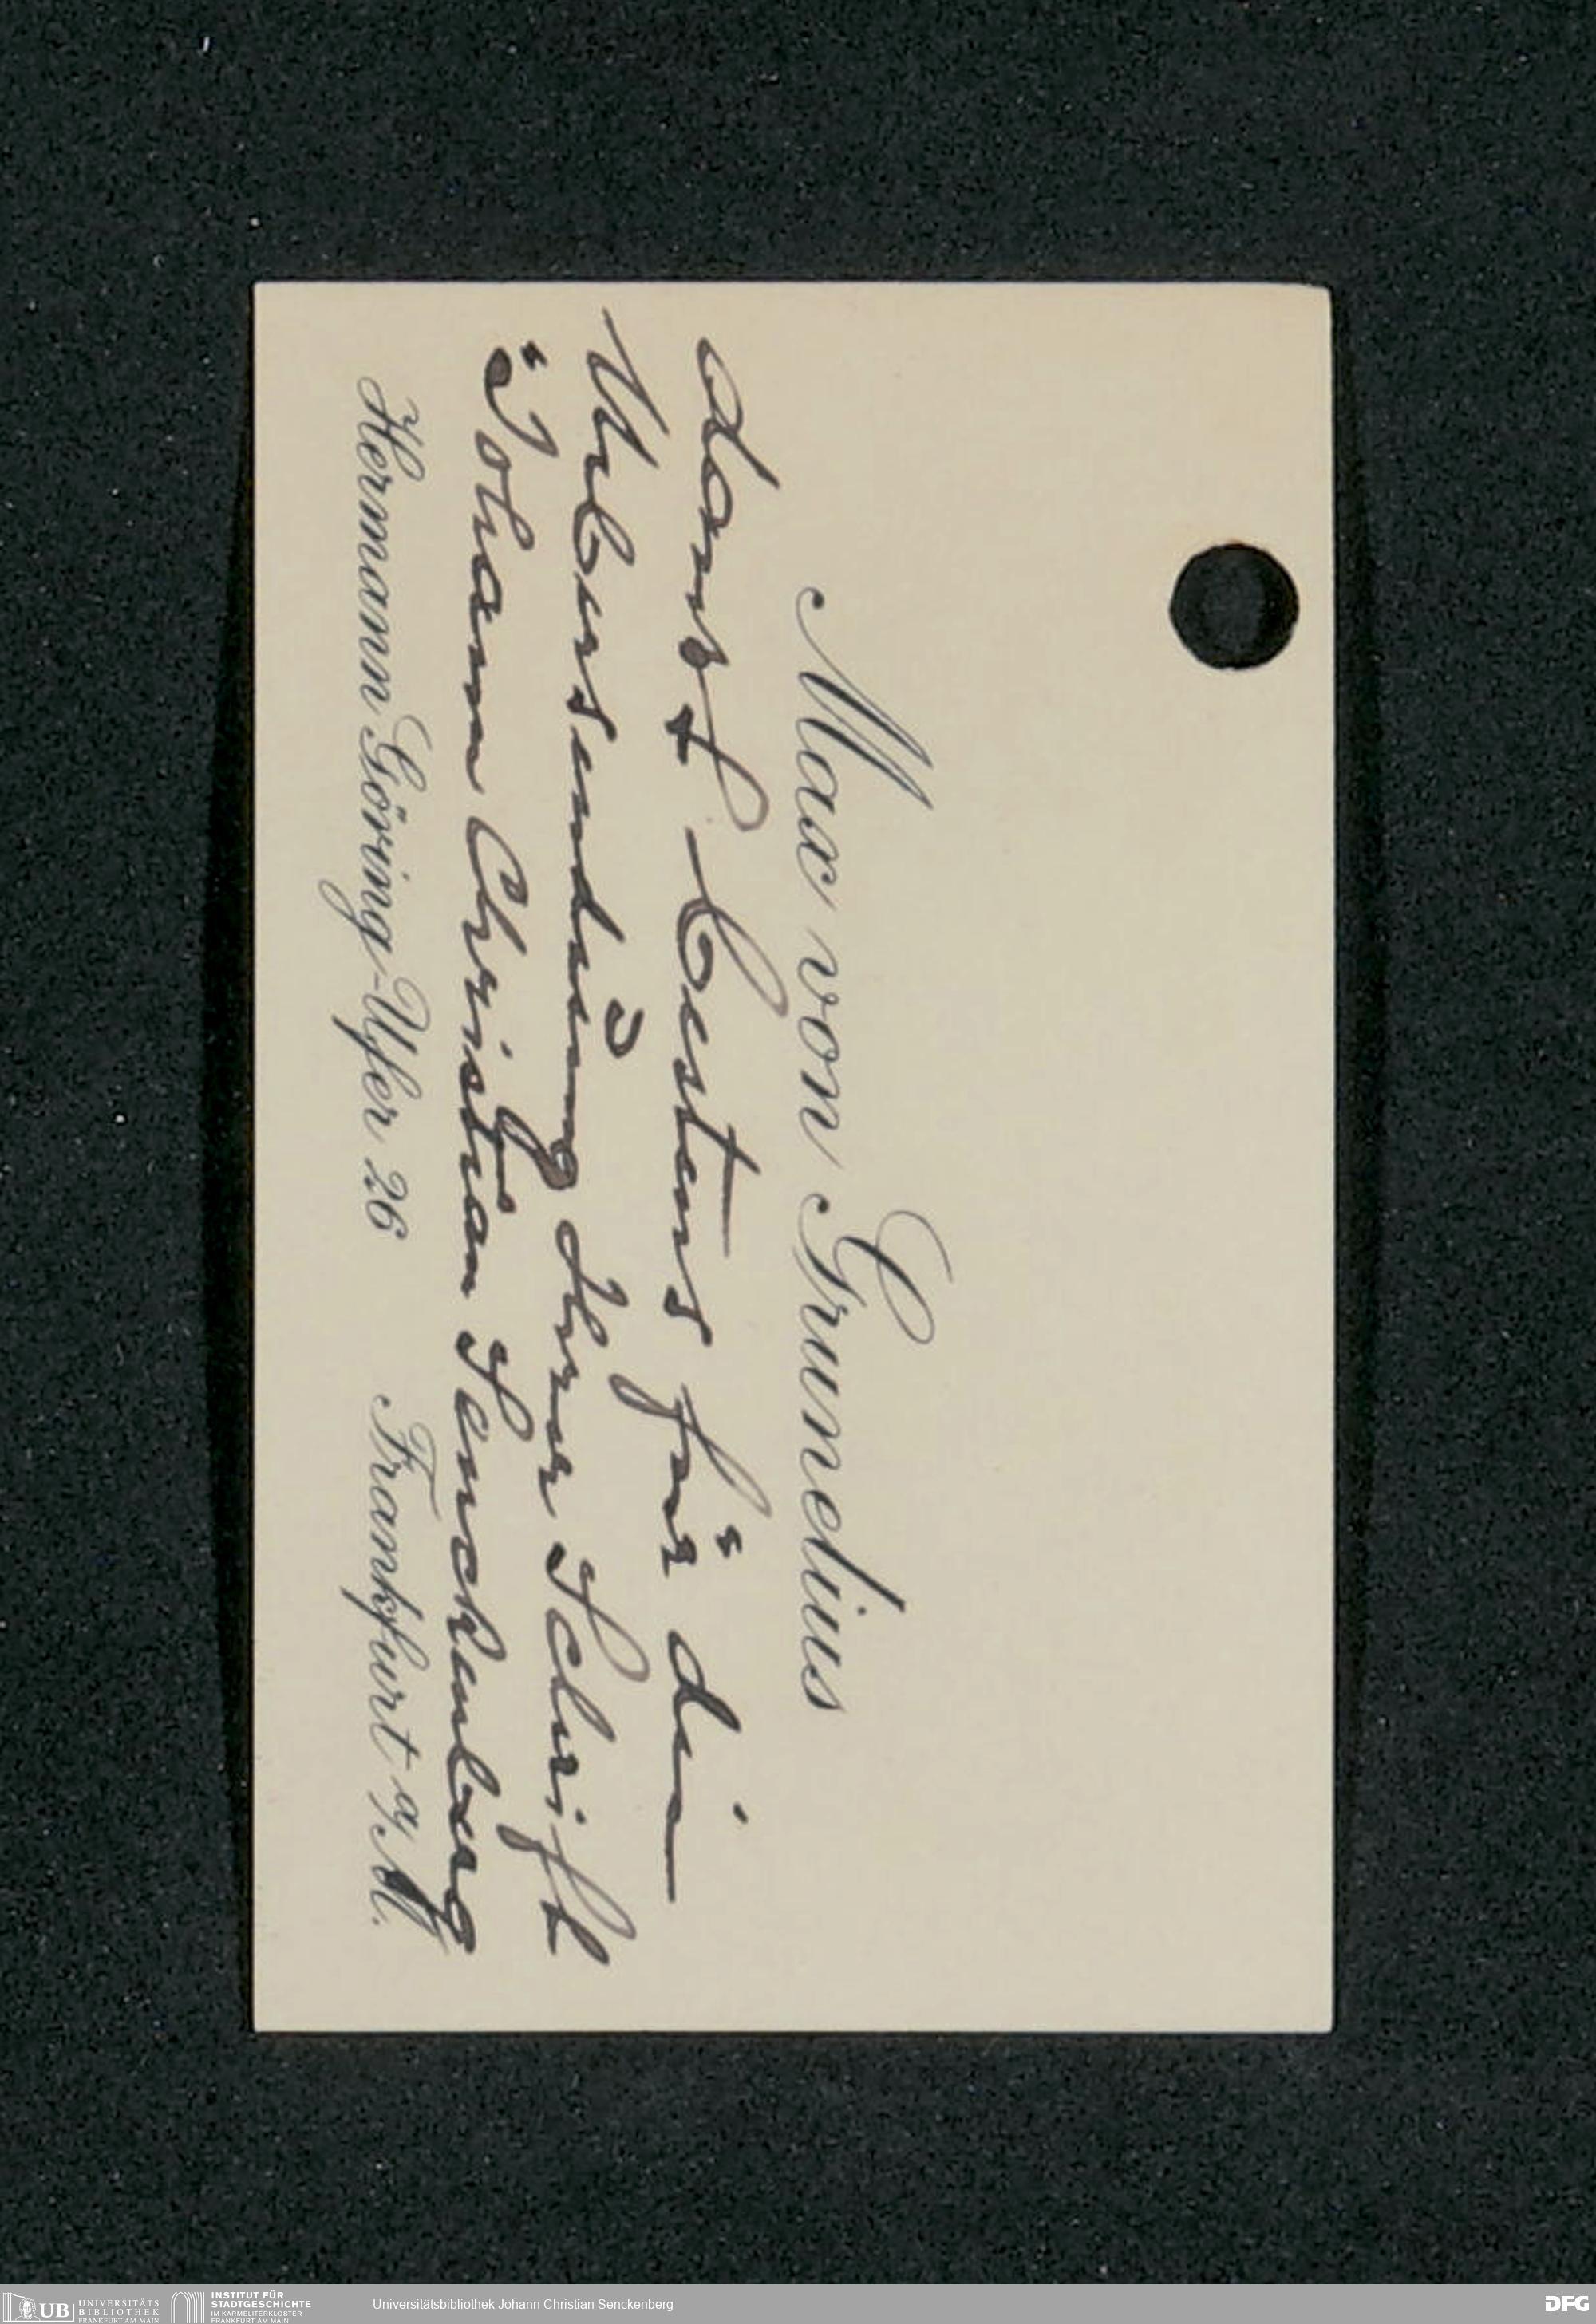 Max von Grunelius
dankt bestens für die
Übersendung Ihrer Schrift
"Johann Christian Senckenberg"
Hermann Göring-Ufer 26 Frankfurt a/M.
UB UNIVERSITÄTS
BIBLIOTHEK
FRANKFURT AM MAIN
INSTITUT FÜR
STADTGESCHICHTE
IM KARMELITERKLOSTER
FRANKFURT AM MAIN
Universitätsbibliothek Johann Christian Senckenberg
DFG